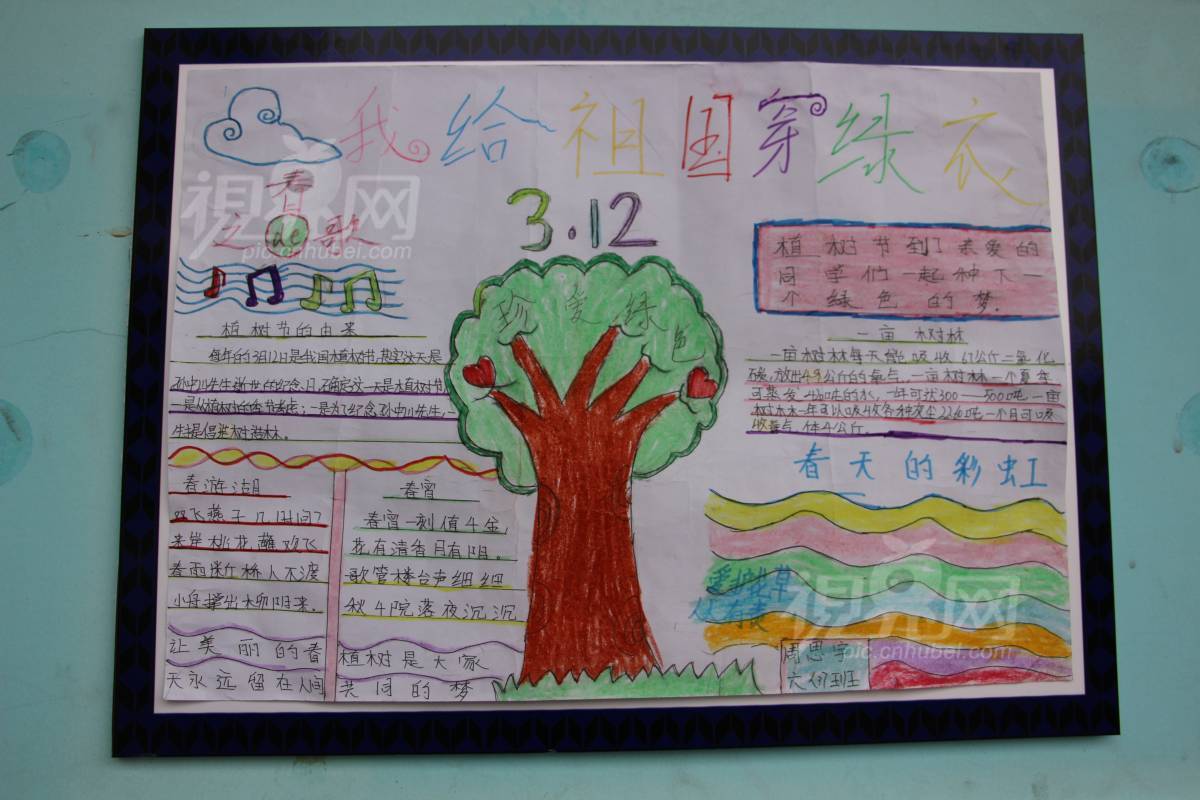 我给祖国穿绿衣
3.12
春
之de歌
视觉网
pic.cnhubei.com
植树节到了亲爱的
同学们一起种下一
个绿色的梦.
珍爱绿色
植树节的由来
每年的3月12日是我国植树节,其实这天是
孙中山先生逝世的纪念日,确定这一天是植树节,
一是从植树的季节考虑;一是为了纪念孙中山先生,一
生提倡
一亩树林
一亩树林每天能吸收67公斤二氧化
碳,放出49公斤的氧气,一亩树林一个夏季
可蒸发 的水,一年可 300——500吨,一亩
树木一年可以吸收各种灰尘22-60吨,一个月可吸
收 体4公斤.
春游湖
双飞燕子几时回?
夹岸桃花蘸水飞
春雨断桥人不渡
小舟撑出柳阴来.
春宵
春宵一刻值千金,
花有清香月有阴.
歌管楼台声细细
秋千院落夜沉沉
春天的彩虹
爱护花草
人人有责
让美丽的春
天永远留在人间
植树是大家
共同的梦
周思宇
六 班
视觉网
pic.cnhubei.com